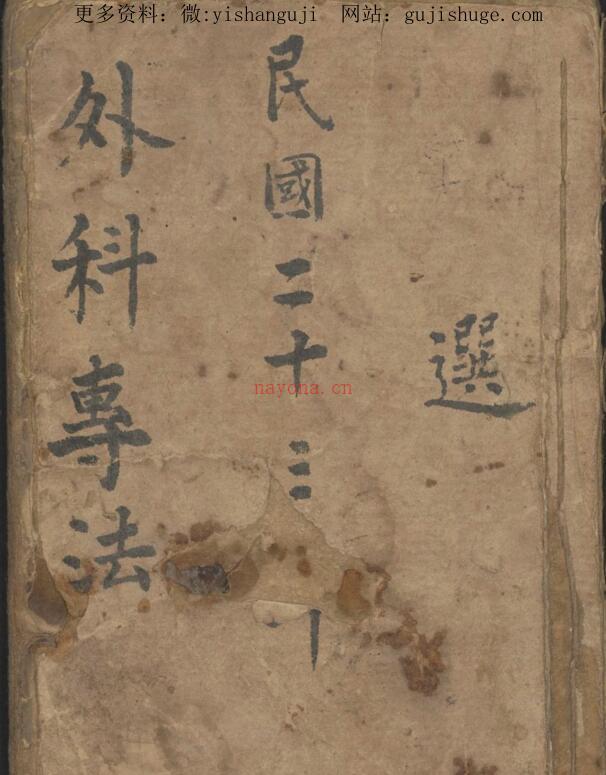 更多资料：微:yishanguji 网站：gujishuge.com
選
民國二十三
外科專法
nayona.cn